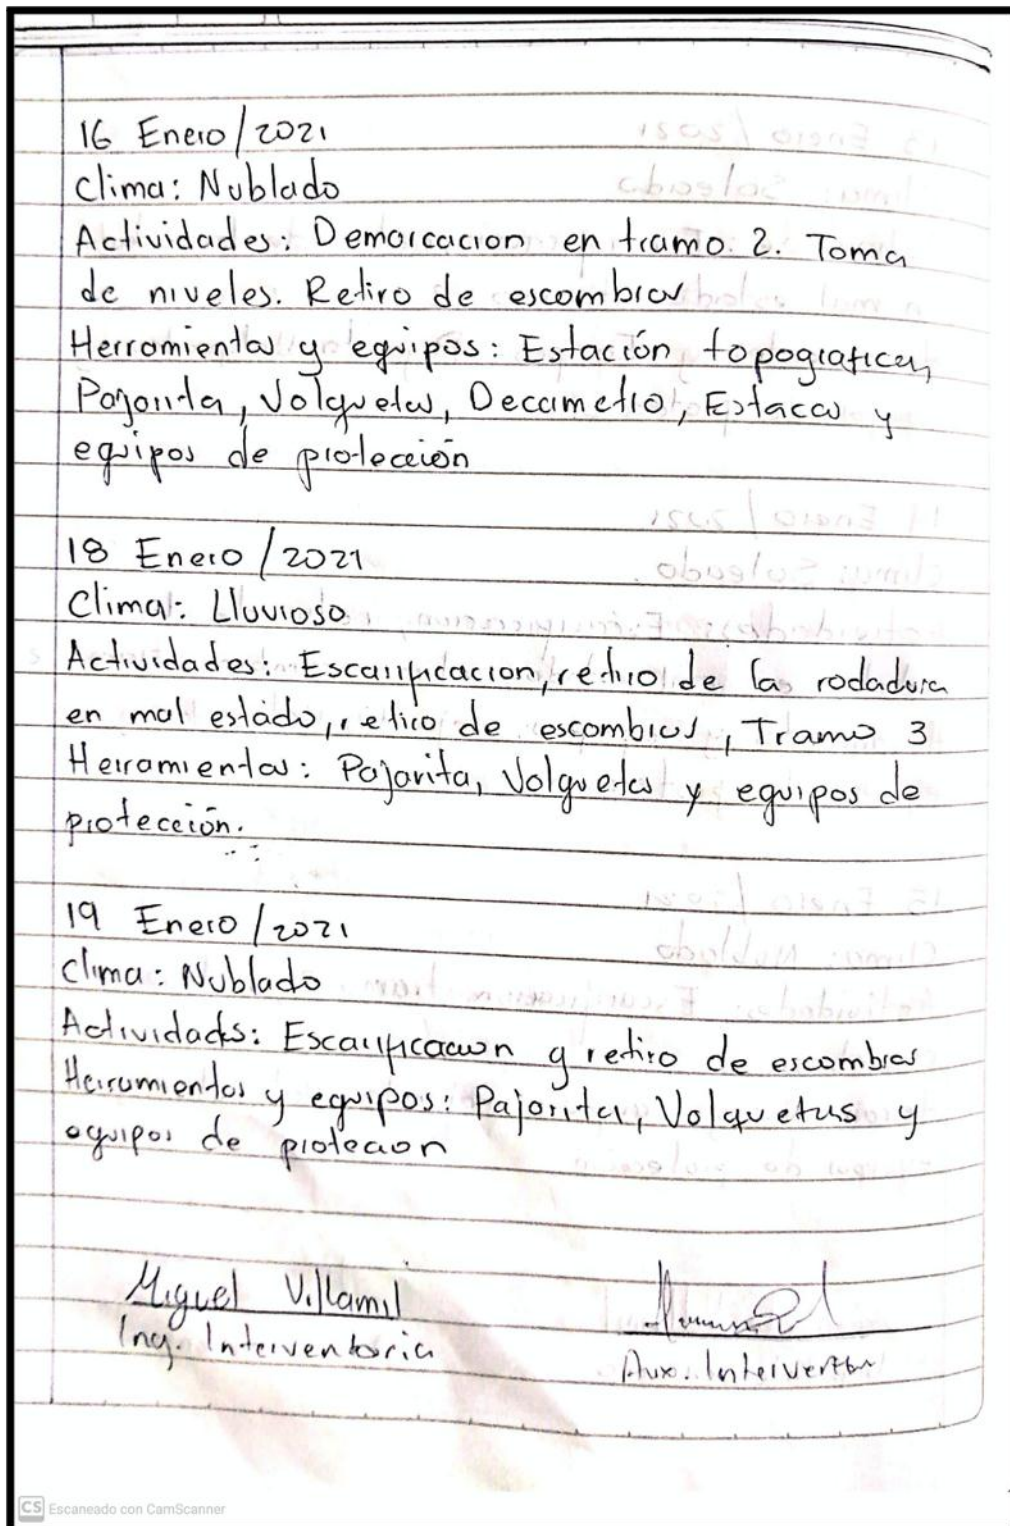 16 Enero/2021
Clima: Nublado
Actividades: Demarcacion en tramo. 2. Toma
de niveles. Retiro de escombros
Herramientas y equipos: Estación topografica,
Pajarita, Volquetas, Decametro, Estacas y
equipos de protección
18 Enero/2021
Clima: Lluvioso
Actividades: Escarificacion, retiro de la rodadura
en mal estado, retiro de escombros, Tramo 3
Herramientas: Pajarita, Volquetas y equipos de
protección.
19 Enero/2021
Clima: Nublado
Actividades: Escarificacion y retiro de escombros
Herramientas y equipos: Pajarita, Volquetas y
equipos de proteccion
Miguel Villamil
Ing. Interventoria
Aux. Interventor
CS Escaneado con CamScanner